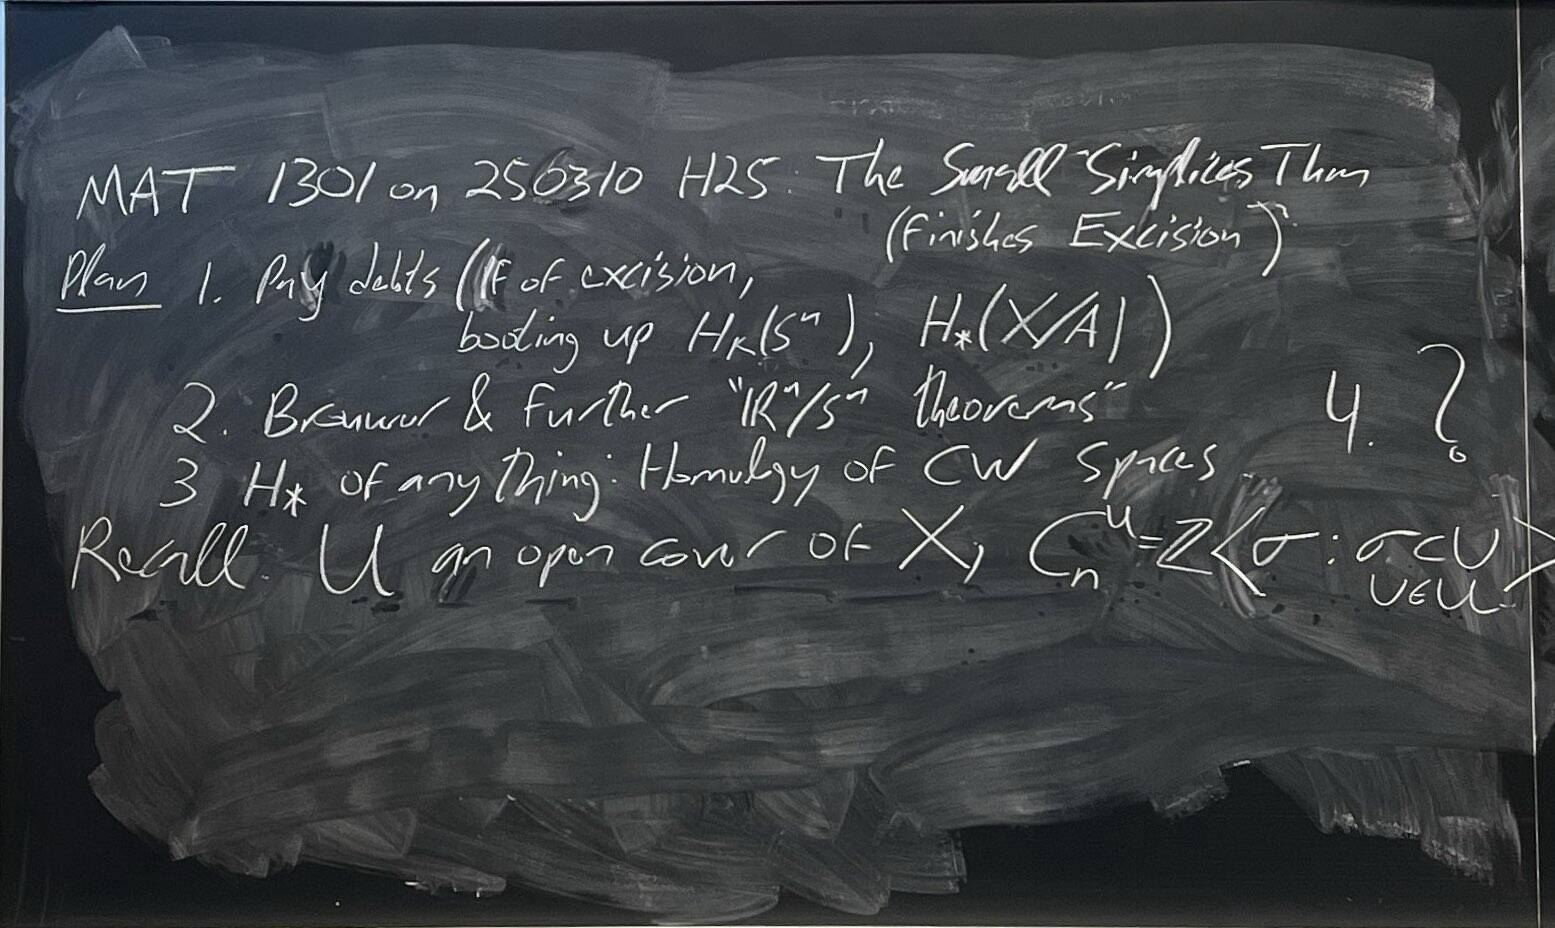 MAT 1301 on 250310 H25: The Small Simplices Thm
(Finishes Excision)
Plan 1. Pay debts (Pf of excision,
booting up Hₖ(Sⁿ), H_*(X/A))
2. Brouwer & further "ℝⁿ/Sⁿ theorems"
4. ?
3 H_* of anything: Homology of CW spaces.
Recall: U an open cover of X, Cₙᵁ=ℤ<σ : σ⊂U
U∈U>